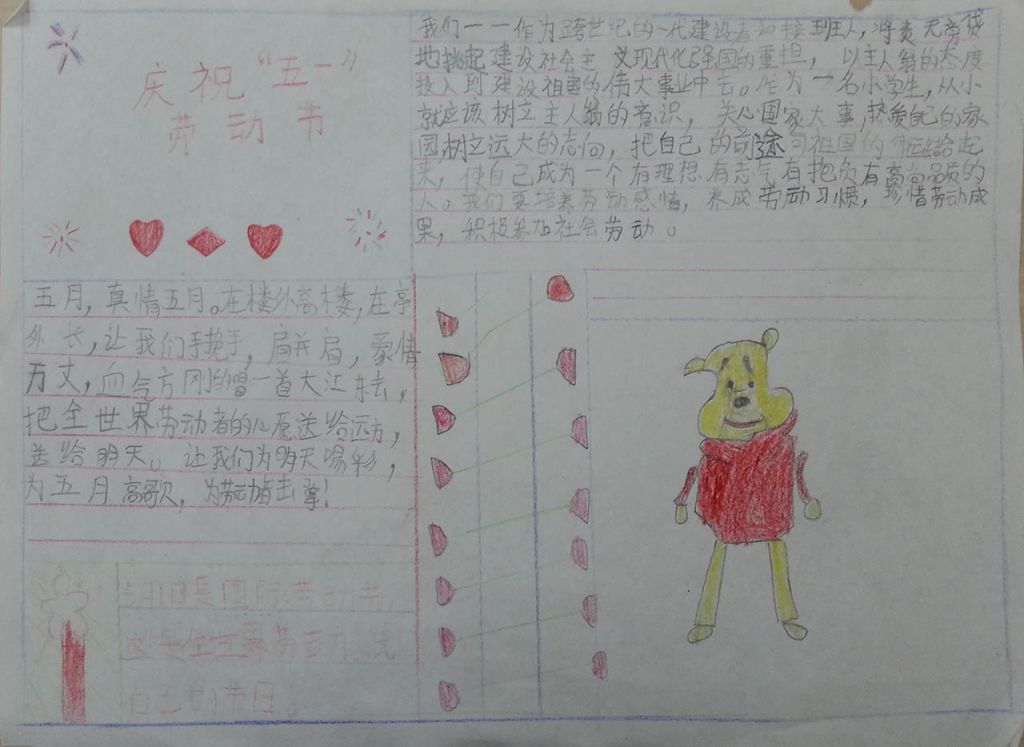 庆祝“五一”
劳动节
我们一一作为跨世纪的一代建设者和接班人，将责无旁贷
地挑起建设社会主义现代化强国的重担，以主人翁的态度
投入到建设祖国的伟大事业中去。作为一名小学生，从小
就应该树立主人翁的意识，关心国家大事，热爱自己的家
园，树立远大的志向，把自己的前途与祖国的命运结合起
来，使自己成为一个有理想有志气有抱负有高品质的
人。我们要培养劳动感情，养成劳动习惯，珍惜劳动成
果，积极参加社会劳动。
五月，真情五月。在楼外高楼，在亭
外长，让我们手挽手，肩并肩，豪情
万丈，血气方刚的唱一首大江东去，
把全世界劳动者的心愿送给远方，
送给明天。让我们为明天喝彩，
为五月高歌，为劳动者击掌！
5月1日是国际劳动节，
这是全世界劳动
自己的节日